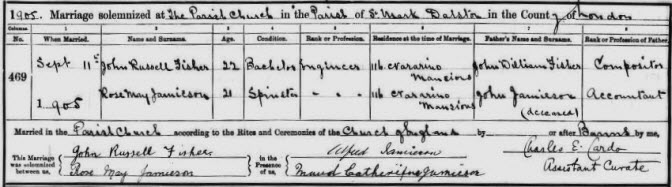 1905. Marriage solemnized at The Parish Church in the Parish of St Mark Dalston in the County of London
Columns:— 1 2 3 4 5 6 7 8
No. When Married. Name and Surname. Age. Condition. Rank or Profession. Residence at the time of Marriage. Father's Name and Surname. Rank or Profession of Father.
469
Sept 11th John Russell Fisher 22 Bachelor Engineer 116 Navarino Mansions John William Fisher Compositor
1905 Rose May Jamieson 21 Spinster - - 116 Navarino Mansions John Jamieson (deceased) Accountant
Married in the Parish Church according to the Rites and Ceremonies of the Church of England by or after Banns by me,
This Marriage was solemnized between us, John Russell Fisher Rose May Jamieson in the Presence of us, Alfred Jamieson Maud Catherine Jamieson Charles E. Cardo Assistant Curate